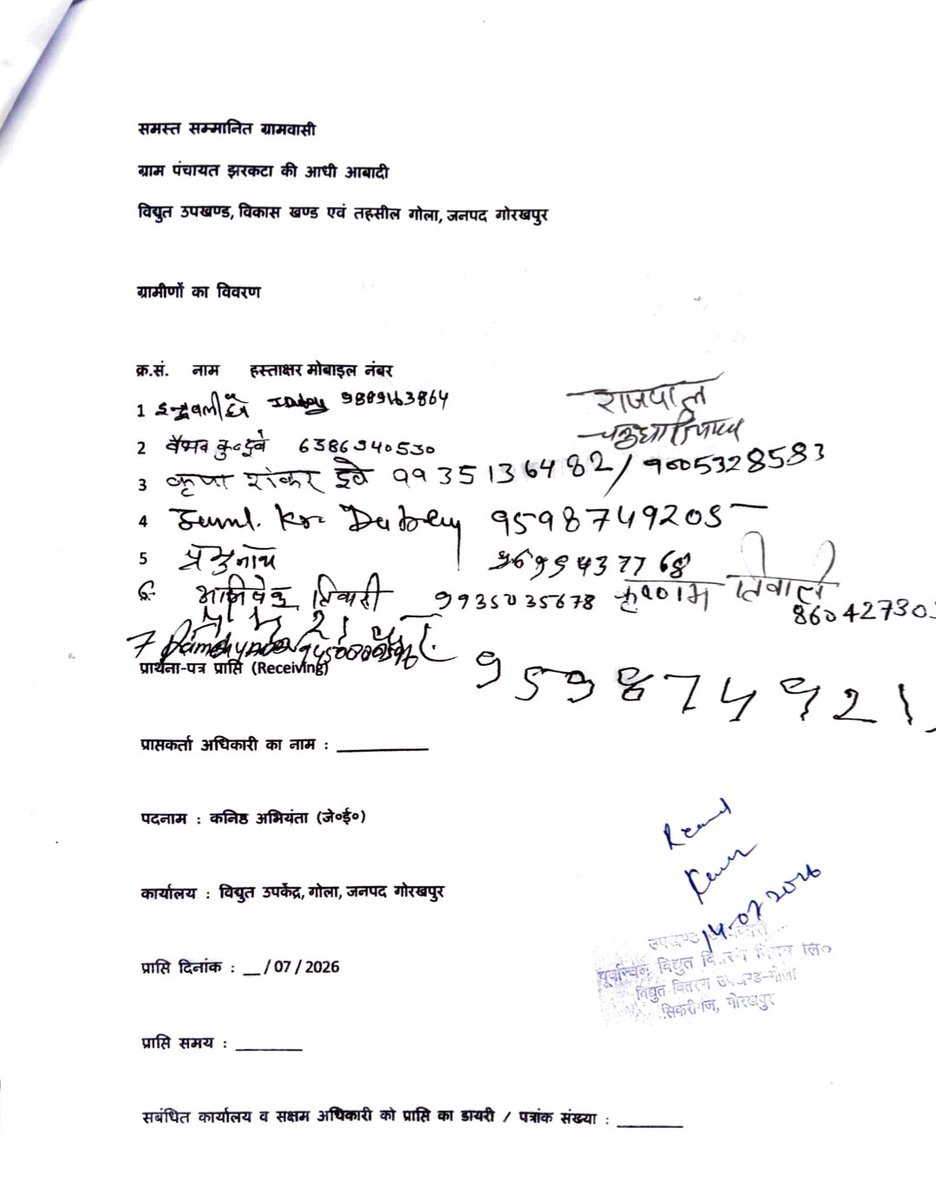 समस्त सम्मानित ग्रामवासी
ग्राम पंचायत झरकटा की आधी आबादी
विद्युत उपखण्ड, विकास खण्ड एवं तहसील गोला, जनपद गोरखपुर
ग्रामीणों का विवरण
क्र.सं. नाम हस्ताक्षर मोबाइल नंबर
राजपाल
1 इन्द्रावली 9889163864
2 वैभव कु० दुबे 6386940530
3 कृपा शंकर दुबे 9935136482 / 9005328583
4 Kr Dubey 9598749205
5 प्रभुनाथ
6. अभिषेक तिवारी 9935035678 तिवारी
7
प्रार्थना-पत्र प्राप्ति (Receiving)
प्राप्तकर्ता अधिकारी का नाम : ________
पदनाम : कनिष्ठ अभियंता (जे०ई०)
कार्यालय : विद्युत उपकेंद्र, गोला, जनपद गोरखपुर
14-07-2026
प्राप्ति दिनांक : __ / 07 / 2026
पूर्वान्चल विद्युत वितरण निगम लि०
विद्युत वितरण उपखण्ड-गोला
सिकरीगंज, गोरखपुर
प्राप्ति समय : ________
सबंधित कार्यालय व सक्षम अधिकारी को प्राप्ति का डायरी / पत्रांक संख्या : ________